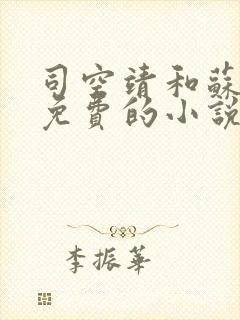 司空靖和蘇
免費的小說
李振華